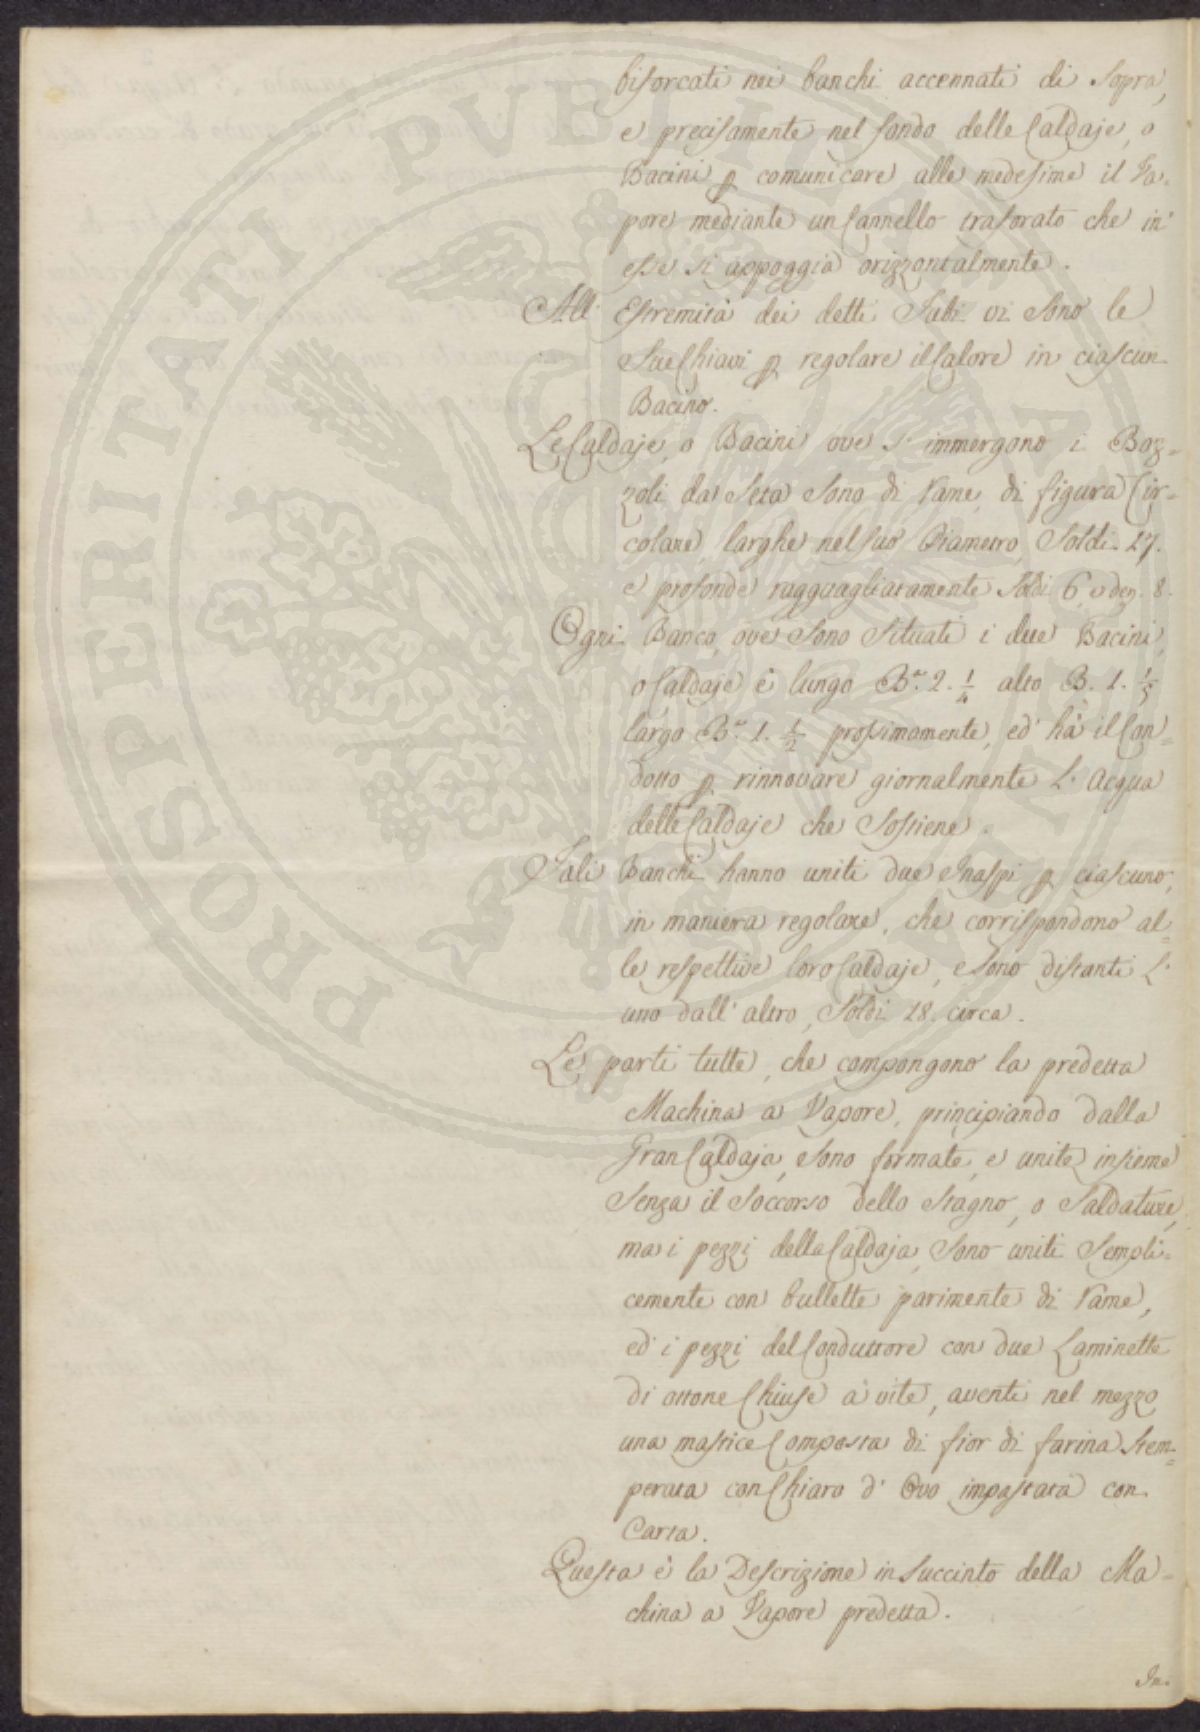 biforcati nei banchi accennati di Sopra,
e precisamente nel fondo delle Caldaje, o
Bacini p comunicare alle medesime il Va=
pore mediante un Cannello traforato che in
esse si appoggia orizzontalmente.
All' Estremità dei detti Tubi vi Sono le
Sue Chiavi p regolare il Calore in ciascun
Bacino.
Le Caldaje, o Bacini ove S' immergono i Boz=
zoli da Seta Sono di rame, di figura Cir=
colare, larghe nel suo Diametro Soldi 17.
e profonde ragguagliatamente Soldi 6, e den. 8.
Ogni Banco, ove Sono Situati i due Bacini,
o Caldaje è lungo B.a 2. 1/4 alto B. 1. 1/3
largo B.a 1. 1/2 prossimamente, ed hà il Con=
dotto p rinnovare giornalmente L' acqua
delle Caldaje che Sostiene.
Tali Banchi hanno uniti due Snaspi p ciascuno,
in maniera regolare, che corrispondono al=
le respettive loro Caldaje, e Sono distanti L'
uno dall' altro, Soldi 18. circa.
Le parti tutte, che compongono la predetta
Machina a Vapore, principiando dalla
Gran Caldaja, Sono formate, e unite insieme
Senza il Soccorso dello Stagno, o Saldature,
ma i pezzi della Caldaja, Sono uniti Sempli=
cemente con bullette parimente di rame,
ed i pezzi del Conduttore con due Laminette
di ottone Chiuse à vite, aventi nel mezzo
una mastice Composta di fior di farina Stem=
perata con Chiaro d' Ovo impastata con
Carta.
Questa è la Descrizione in Succinto della Ma=
china a Vapore predetta.
In.
PROSPERITATI PUBLICAE AUGENDAE